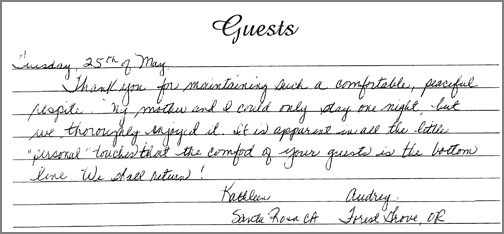 Guests
Tuesday, 25th of May
Thank you for maintaining such a comfortable, peaceful
respite. My mother and I could only stay one night, but
we thoroughly enjoyed it. It is apparent in all the little
"personal" touches that the comfort of your guests is the bottom
line. We shall return!
Kathleen Audrey
Santa Rosa CA Forest Grove, OR